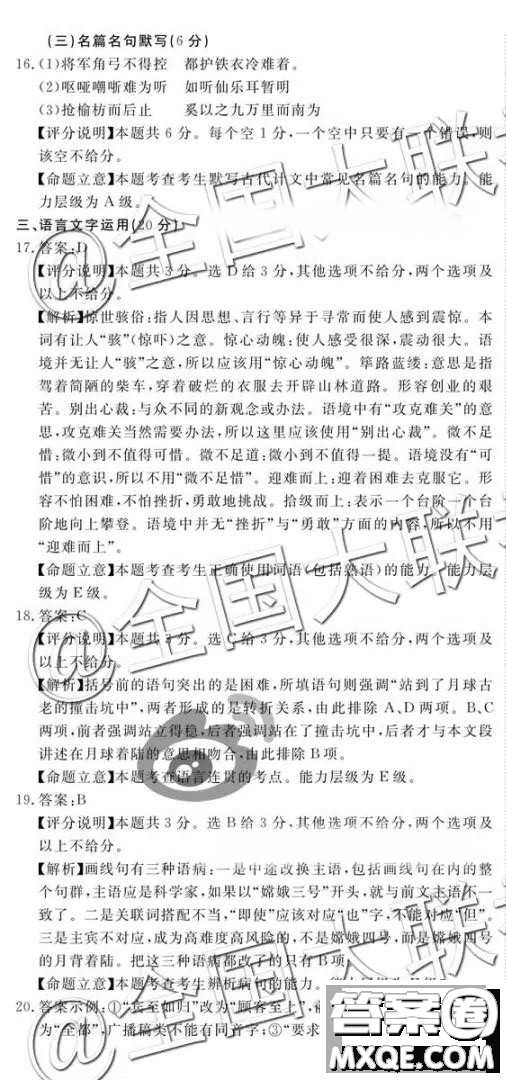 (三)名篇名句默写(6分)
16.(1)将军角弓不得控 都护铁衣冷难着。
(2)呕哑嘲哳难为听 如听仙乐耳暂明
(3)抢榆枋而后止 奚以之九万里而南为
【评分说明】本题共6分。每个空1分,一个空中只要有一个错误,则
该空不给分。
【命题立意】本题考查考生默写古代计文中常见名篇名句的能力。能
力层级为A级。
三、语言文字运用(20分)
17.答案:D
【评分说明】本题共3分。选D给3分,其他选项不给分,两个选项及
以上不给分。
【解析】惊世骇俗:指人因思想、言行等异于寻常而使人感到震惊。本
词有让人“骇”(惊吓)之意。惊心动魄:使人感受很深,震动很大。语
境并无让人“骇”之意,所以应该用“惊心动魄”。筚路蓝缕:意思是指
驾着简陋的柴车,穿着破烂的衣服去开辟山林道路。形容创业的艰
苦。别出心裁:与众不同的新观念或办法。语境中有“攻克难关”的意
思,攻克难关当然需要办法,所以这里应该使用“别出心裁”。微不足
惜:微小到不值得可惜。微不足道:微小到不值得一提。语境没有“可
惜”的意识,所以不用“微不足惜”。迎难而上:迎着困难去克服它。形
容不怕困难,不怕挫折,勇敢地挑战。拾级而上:表示一个台阶一个台
阶地向上攀登。语境中并无“挫折”与“勇敢”方面的内容,所以不用
“迎难而上”。
【命题立意】本题考查考生正确使用词语(包括熟语)的能力。能力层
级为E级。
18.答案:C
【评分说明】本题共3分。选C给3分,其他选项不给分,两个选项及
以上不给分。
【解析】括号前的语句突出的是困难,所填语句则强调“站到了月球古
老的撞击坑中”,两者形成的是转折关系,由此排除A、D两项。B、C
两项,前者强调站立得稳,后者强调站在了撞击坑中,后者才与本文段
讲述在月球着陆的意思相吻合,由此排除B项。
【命题立意】本题考查语言连贯的考点。能力层级为E级。
19.答案:B
【评分说明】本题共3分。选B给3分,其他选项不给分,两个选项及
以上不给分。
【解析】画线句有三种语病:一是中途改换主语,包括画线句在内的整
个句群,主语应是科学家,如果以“嫦娥三号”开头,就与前文主语不一
致了。二是关联词搭配不当,“即使”应该对应“也”字,不能对应“但”。
三是主宾不对应,成为高难度高风险的,不是嫦娥四号,而是嫦娥四号
的月背着陆。把这三种语病都改了的只有B项。
【命题立意】本题考查考生辨析病句的能力。
20.答案示例:①“宾至如归”改为“顾客至上”,
为“全都”,广播稿类不能有同音字;③“要求
@全国大联考
@全国大联考
@全国大联考
答案圈
MXQE.COM